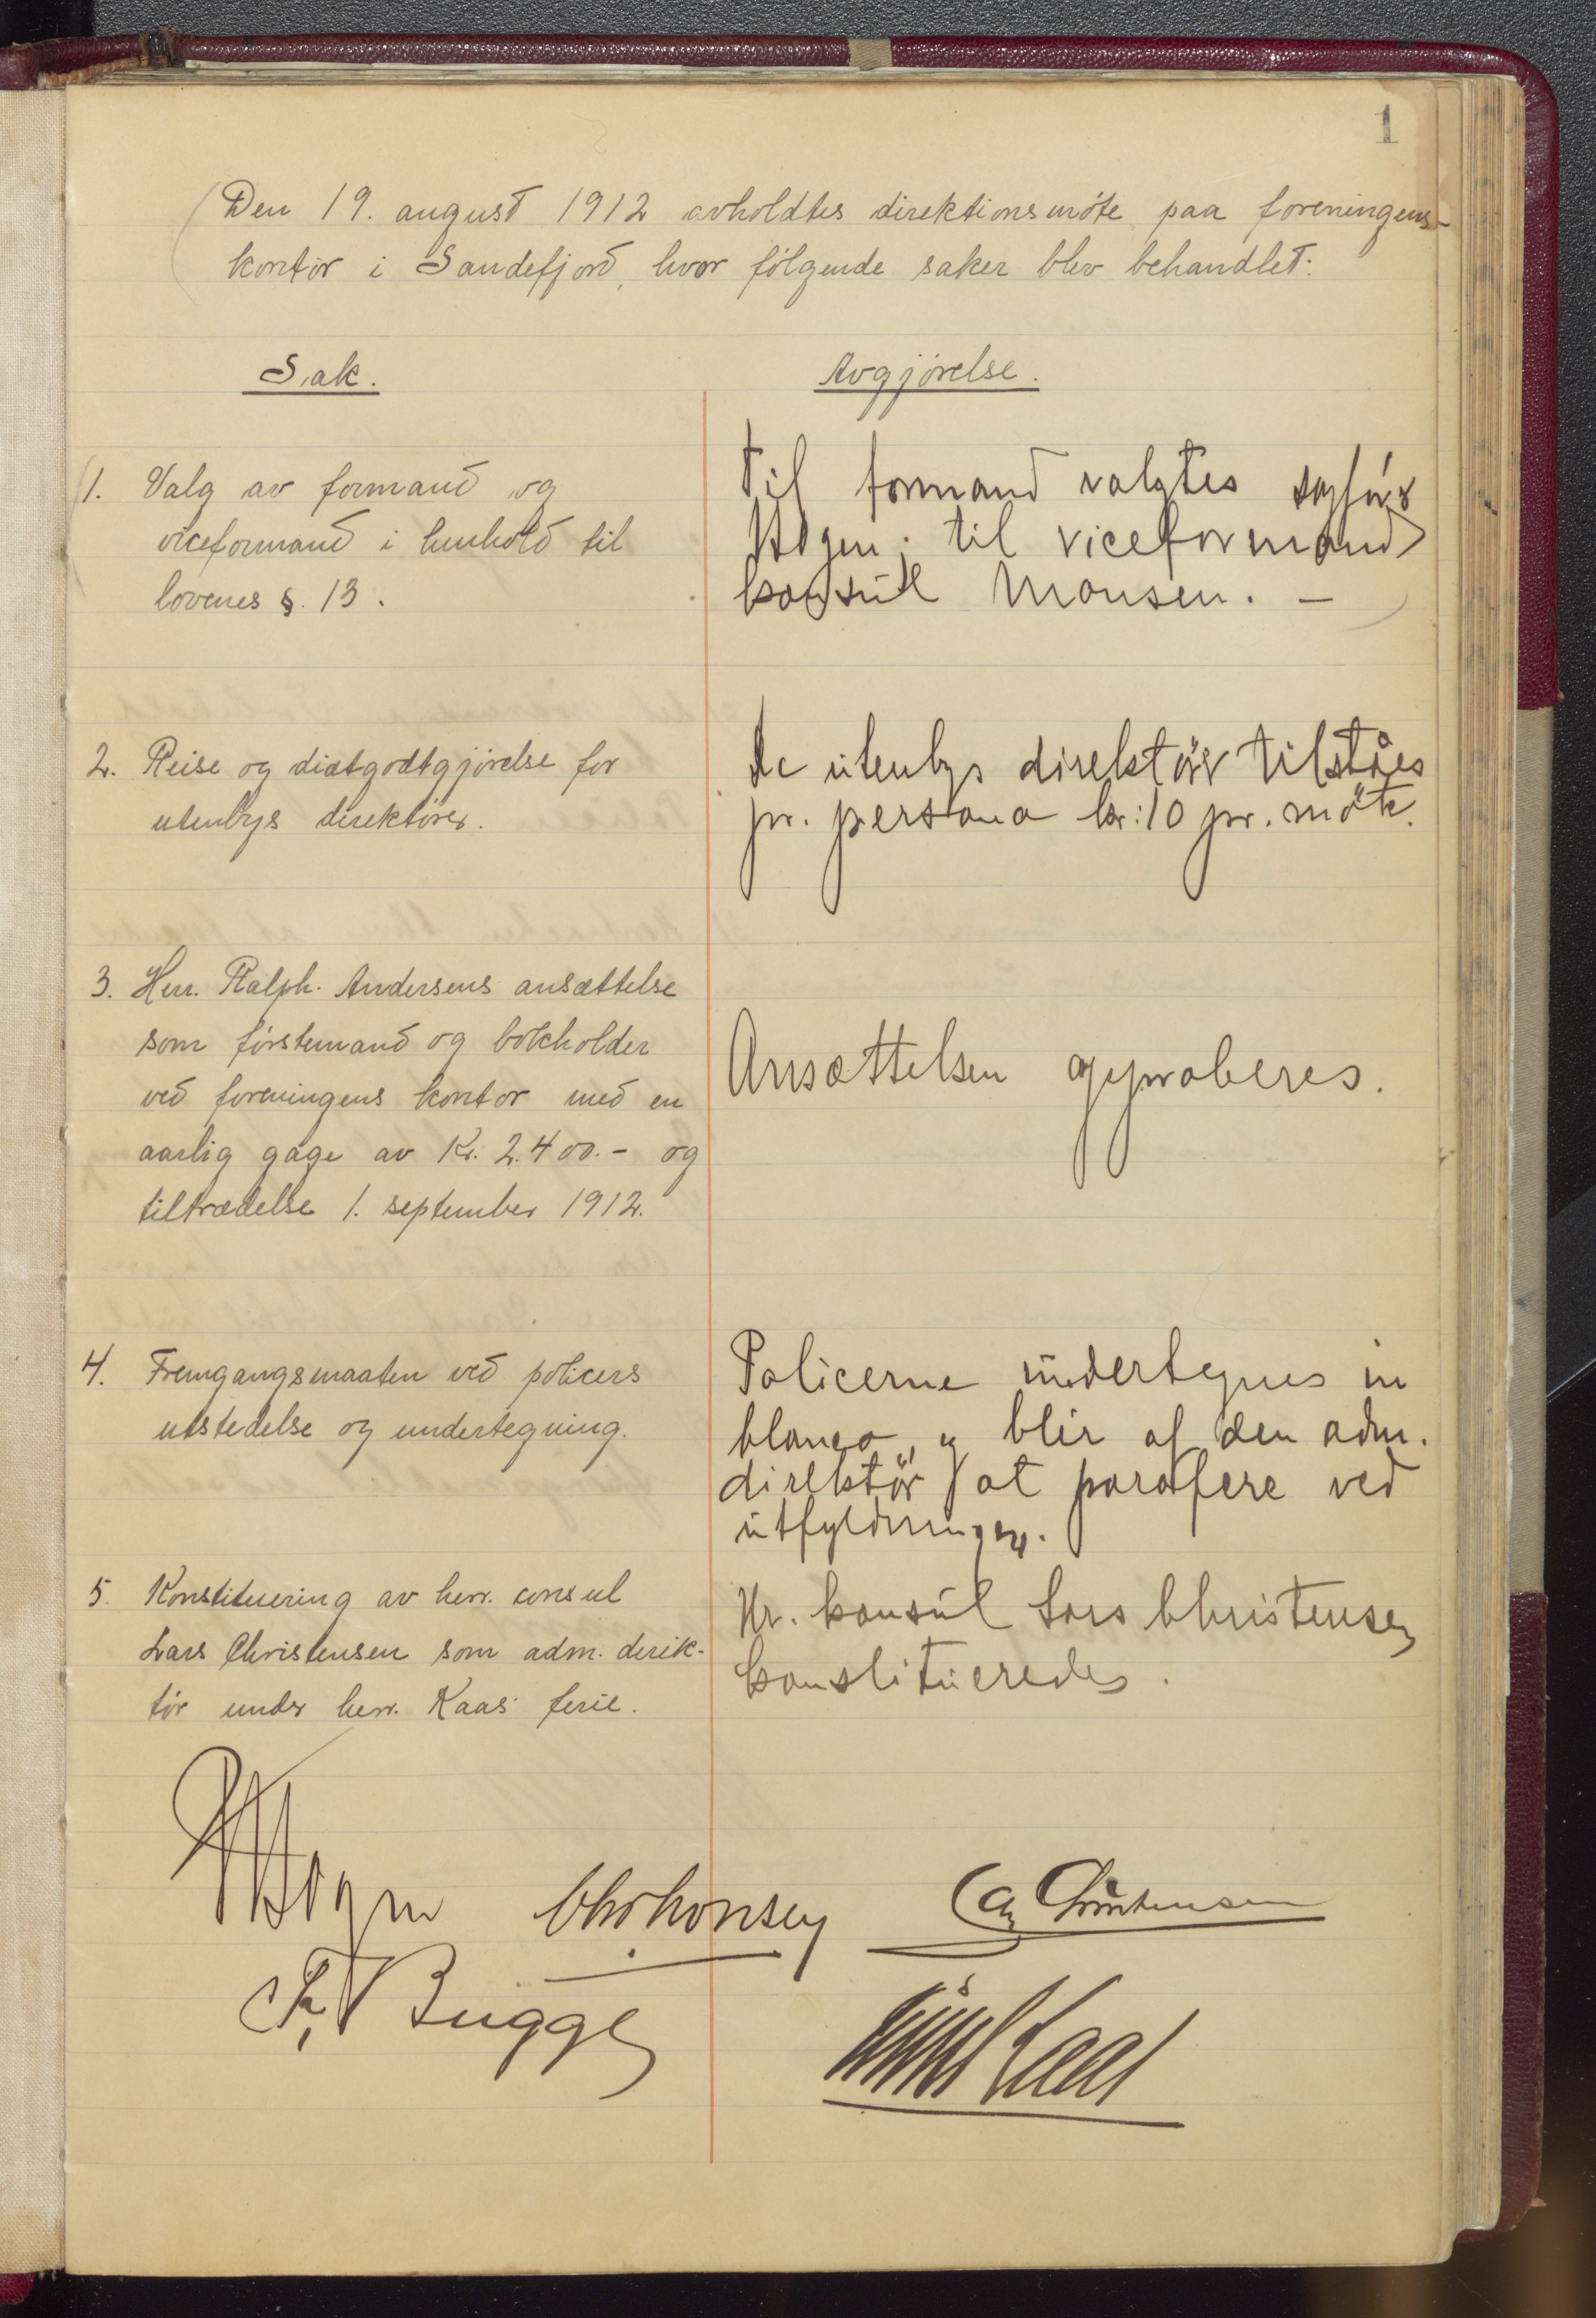 1
Den 19. august 1912 avholdtes direktionsmöte paa foreningens
kontor i Sandefjord, hvor fölgende saker blev behandlet:
Sak.
Avgjörelse.
1. Valg av formand og
viceformand i henhold til
lovenes §. 13.
Til formand valgtes sagför
til viceformand
konsul Monsen. —
2. Reise og diætgodtgjörelse for
utenbys direktörer.
De utenbys direktör tilståes
pr. persona kr: 10 pr. möte.
3. Herr. Ralph. Andersens ansættelse
som förstemand og bokholder
ved foreningens kontor med en
aarlig gage av Kr. 2.400.- og
tiltrædelse 1. september 1912.
Ansættelsen approberes.
4. Fremgangsmaaten ved policers
utstedelse og undertegning.
Policerne undertegnes in
blanco, og blir af den adm.
direktör at parafere ved
utfyldningen.
5. Konstituering av herr. consul
Lars Christensen som adm. derik-
tör under herr. Kaas' ferie.
Hr. konsul Lars Christensen
konstitueredes.
Chr Bugge
Kaas